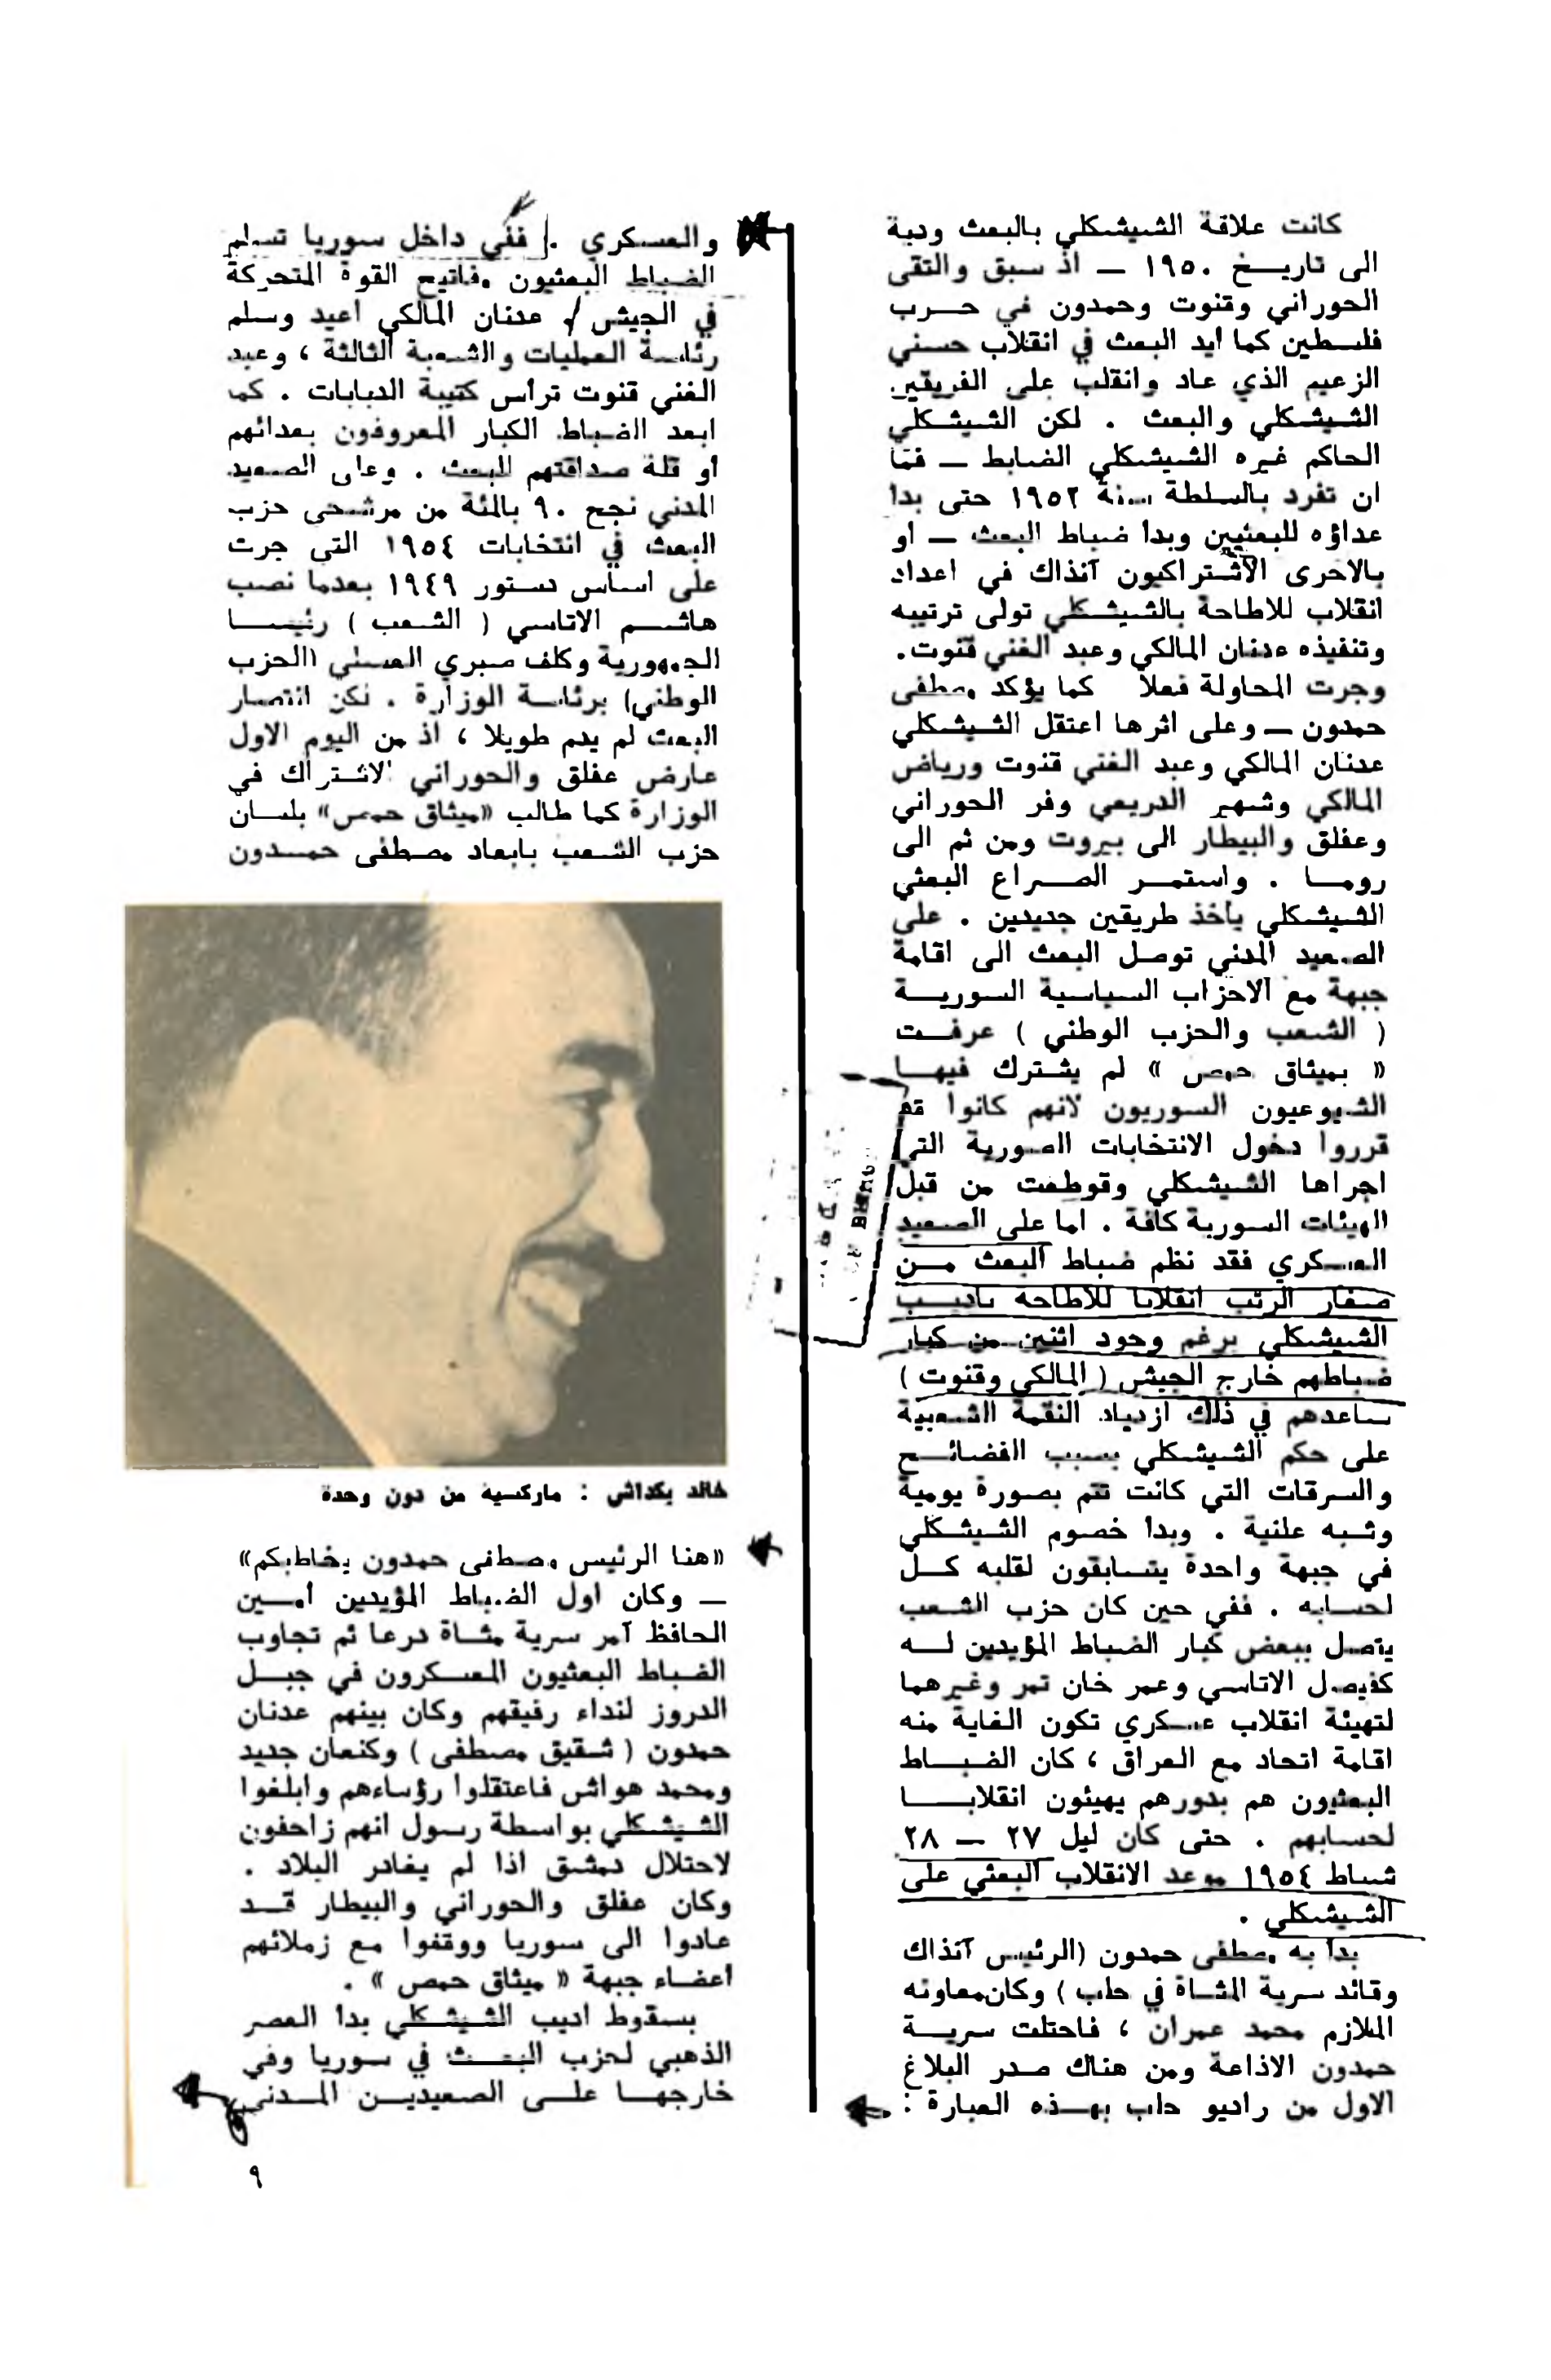 كانت علاقة الشيشكلي بالبعث ودية
الى تاريخ ١٩٥٠ — اذ سبق والتقى
الحوراني وقنوت وحمدون في حرب
فلسطين كما أيد البعث في انقلاب حسني
الزعيم الذي عاد وانقلب على الفريقين
الشيشكلي والبعث . لكن الشيشكلي
الحاكم غيره الشيشكلي الضابط — فما
ان تفرد بالسلطة سنة ١٩٥٢ حتى بدا
عداؤه للبعثيين وبدا ضباط البعث — او
بالاحرى الاشتراكيون آنذاك في اعداد
انقلاب للاطاحة بالشيشكلي تولى ترتيبه
وتنفيذه عدنان المالكي وعبد الغني قنوت.
وجرت المحاولة فعلا كما يؤكد مصطفى
حمدون — وعلى اثرها اعتقل الشيشكلي
عدنان المالكي وعبد الغني قنوت ورياض
المالكي وشهير الدريعي وفر الحوراني
وعفلق والبيطار الى بيروت ومن ثم الى
روما . واستمر الصراع البعثي
الشيشكلي يأخذ طريقين جديدين . على
الصعيد المدني توصل البعث الى اقامة
جبهة مع الاحزاب السياسية السورية
( الشعب والحزب الوطني ) عرفت
« بميثاق حمص » لم يشترك فيها
الشيوعيون السوريون لانهم كانوا قد
قرروا دخول الانتخابات الصورية التي
اجراها الشيشكلي وقوطعت من قبل
الهيئات السورية كافة . اما على الصعيد
العسكري فقد نظم ضباط البعث من
صغار الرتب انقلابا للاطاحة باديب
الشيشكلي برغم وجود اثنين من كبار
ضباطهم خارج الجيش ( المالكي وقنوت )
ساعدهم في ذلك ازدياد النقمة الشعبية
على حكم الشيشكلي بسبب الفضائح
والسرقات التي كانت تتم بصورة يومية
وشبه علنية . وبدا خصوم الشيشكلي
في جبهة واحدة يتسابقون لقلبه كل
لحسابه . ففي حين كان حزب الشعب
يتصل ببعض كبار الضباط المؤيدين له
كفيصل الاتاسي وعمر خان تمر وغيرهما
لتهيئة انقلاب عسكري تكون الغاية منه
اقامة اتحاد مع العراق ، كان الضباط
البعثيون هم بدورهم يهيئون انقلابا
لحسابهم . حتى كان ليل ٢٧ — ٢٨
شباط ١٩٥٤ موعد الانقلاب البعثي على
الشيشكلي .
بدا به مصطفى حمدون (الرئيس آنذاك
وقائد سرية المشاة في حلب ) وكان معاونه
الملازم محمد عمران ، فاحتلت سرية
حمدون الاذاعة ومن هناك صدر البلاغ
الاول من راديو حلب بهذه العبارة :
«هنا الرئيس مصطفى حمدون يخاطبكم»
— وكان اول الضباط المؤيدين أمين
الحافظ آمر سرية مشاة درعا ثم تجاوب
الضباط البعثيون المعسكرون في جبل
الدروز لنداء رفيقهم وكان بينهم عدنان
حمدون ( شقيق مصطفى ) وكنعان جديد
ومحمد هواش فاعتقلوا رؤساءهم وابلغوا
الشيشكلي بواسطة رسول انهم زاحفون
لاحتلال دمشق اذا لم يغادر البلاد .
وكان عفلق والحوراني والبيطار قد
عادوا الى سوريا ووقفوا مع زملائهم
أعضاء جبهة « ميثاق حمص » .
بسقوط اديب الشيشكلي بدا العصر
الذهبي لحزب البعث في سوريا وفي
خارجها على الصعيدين المدني
والعسكري . ففي داخل سوريا تسلم
الضباط البعثيون مفاتيح القوة المتحركة
في الجيش ، عدنان المالكي أعيد وسلم
رئاسة العمليات والشعبة الثالثة ، وعبد
الغني قنوت ترأس كتيبة الدبابات . كما
ابعد الضباط الكبار المعروفون بعدائهم
أو قلة صداقتهم للبعث . وعلى الصعيد
المدني نجح ٩٠ بالمئة من مرشحي حزب
البعث في انتخابات ١٩٥٤ التي جرت
على اساس دستور ١٩٤٩ بعدما نصب
هاشم الاتاسي ( الشعب ) رئيسا
للجمهورية وكلف صبري العسلي (الحزب
الوطني) برئاسة الوزارة . لكن انتصار
البعث لم يدم طويلا ، اذ من اليوم الاول
عارض عفلق والحوراني الاشتراك في
الوزارة كما طالب «ميثاق حمص» بلسان
حزب الشعب بابعاد مصطفى حمدون
خالد بكداش : ماركسية من دون وحدة
٩